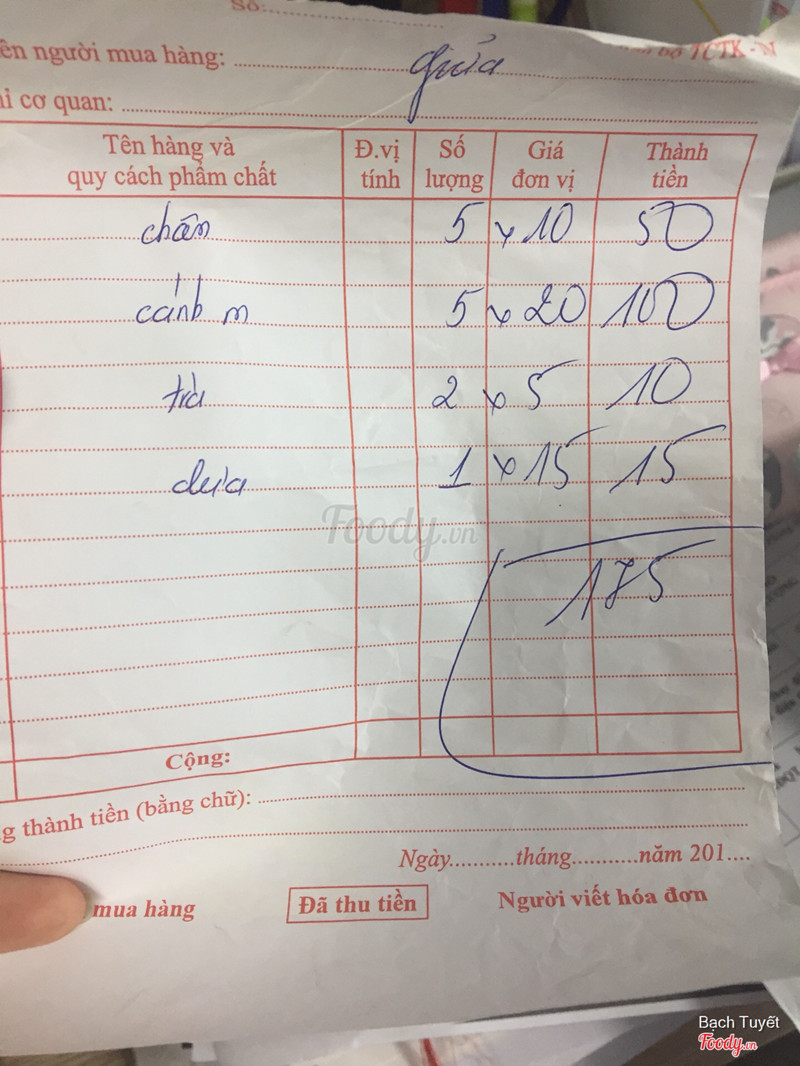 Số:
ên người mua hàng: giữa
TCTK - N
hỉ cơ quan:
Tên hàng và quy cách phẩm chất Đ.vị tính Số lượng Giá đơn vị Thành tiền
chân 5 x 10 50
cánh m 5 x 20 100
trà 2 x 5 10
dưa 1 x 15 15
Foody.vn
175
Cộng:
g thành tiền (bằng chữ):
Ngày..........tháng..........năm 201....
mua hàng Đã thu tiền Người viết hóa đơn
Bạch Tuyết
Foody.vn